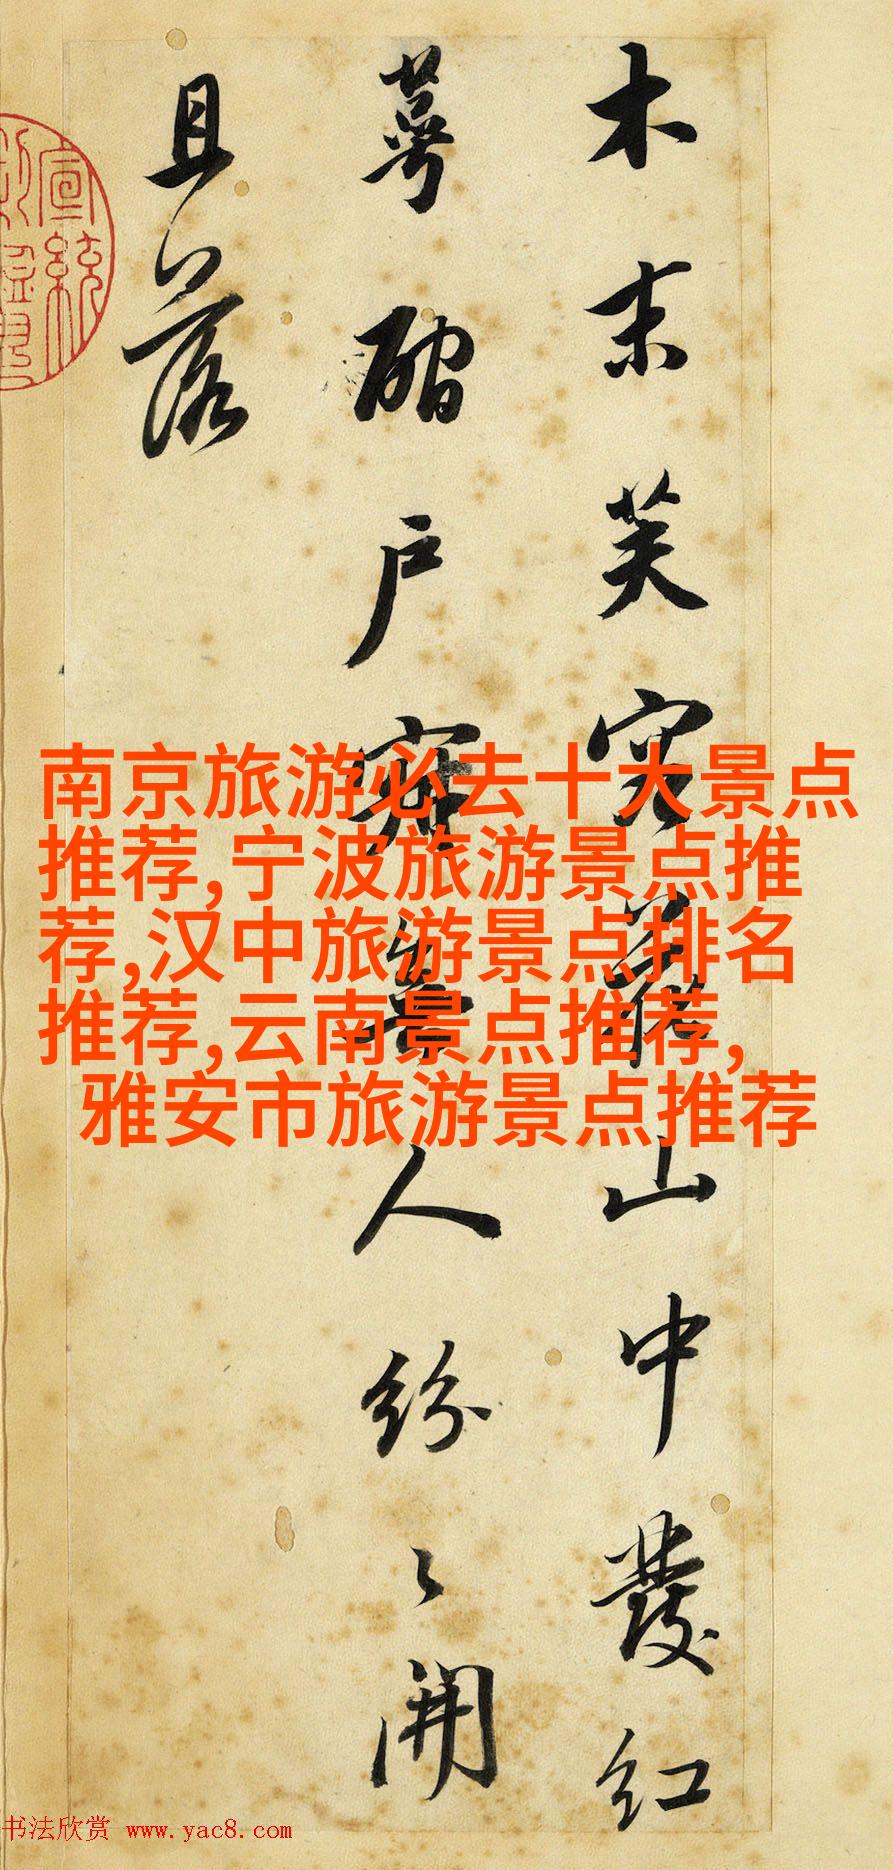 木末芙容花山中發紅
萼磵戶寂無人紛〻開
且落
宣統
南京旅游必去十大景点
推荐,宁波旅游景点推
荐,汉中旅游景点排名
推荐,云南景点推荐,
雅安市旅游景点推荐
书法欣赏 www.yac8.com